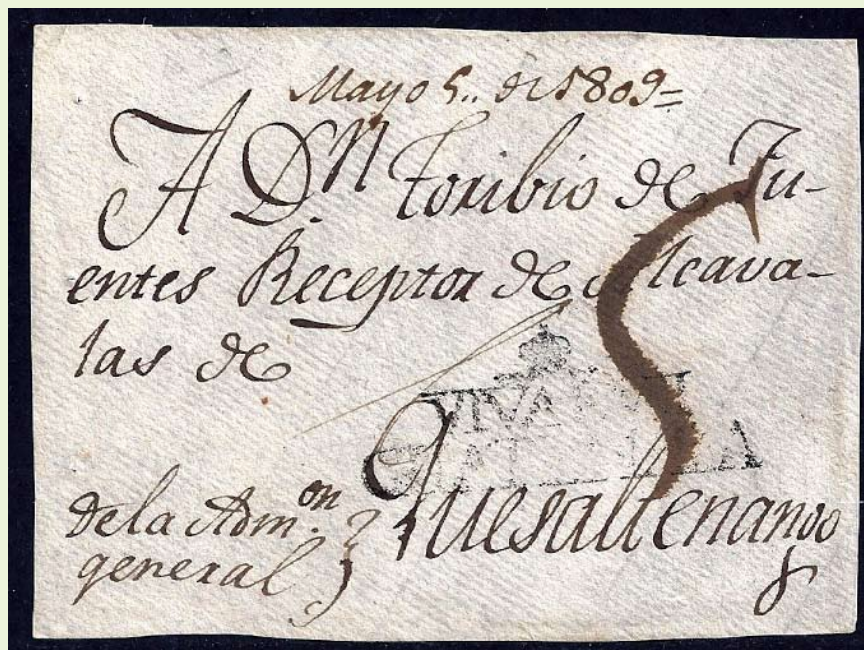 Mayo 5.. de 1809=
A D.n Toribio de Fu-
entes Receptor de Alcava-
las de
VIVA
GUATEMALA
Quesaltenango
de la Adm.on
general